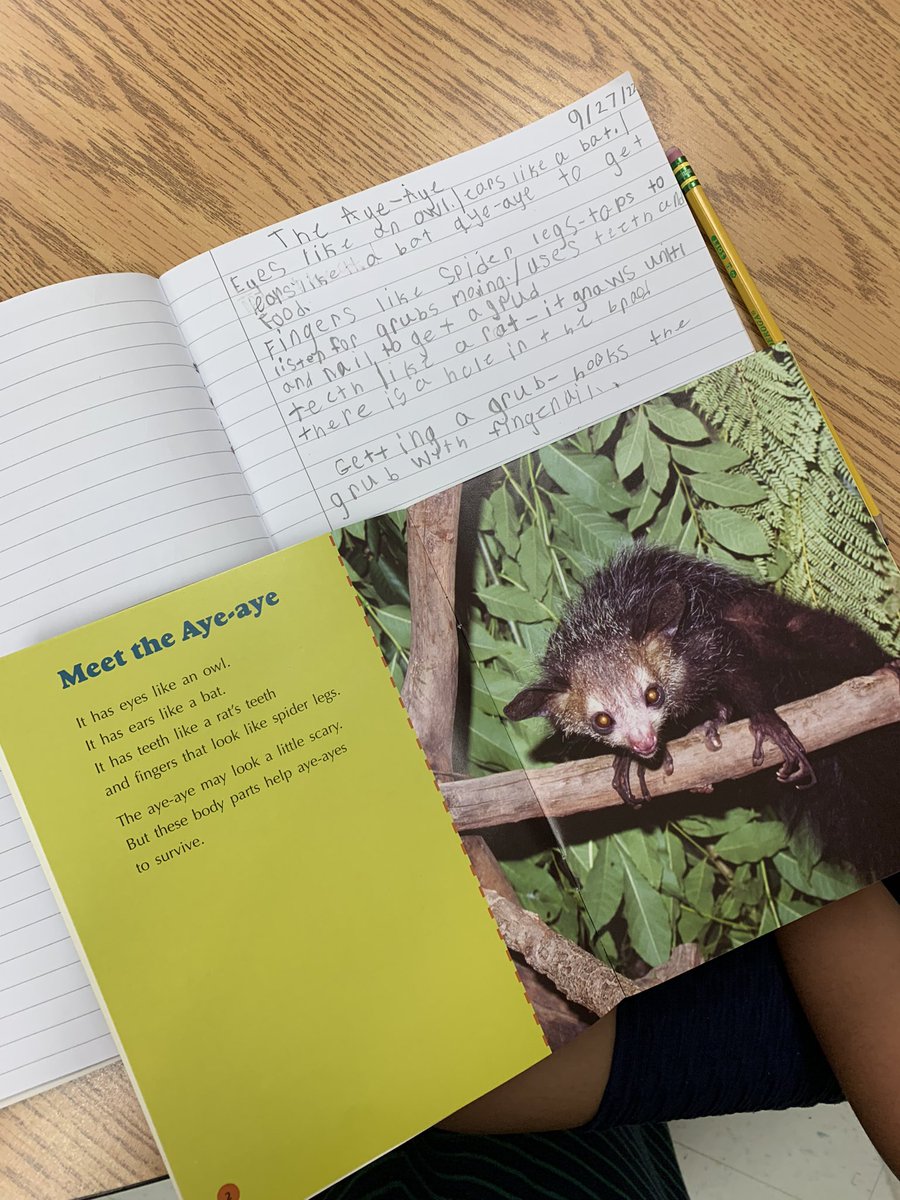 9/27/22
The Aye-Aye
Eyes like an owl. ears like a bat.
ears like a bat aye-aye to get
food.
Fingers like spider legs-taps to
listen for grubs moving/uses teeth and
and nail to get a grub
teeth like a rat-it gnaws until
there is a hole in the
Getting a grub- hooks the
grub with fingernail.
Meet the Aye-aye
It has eyes like an owl.
It has ears like a bat.
It has teeth like a rat's teeth
and fingers that look like spider legs.
The aye-aye may look a little scary.
But these body parts help aye-ayes
to survive.
2